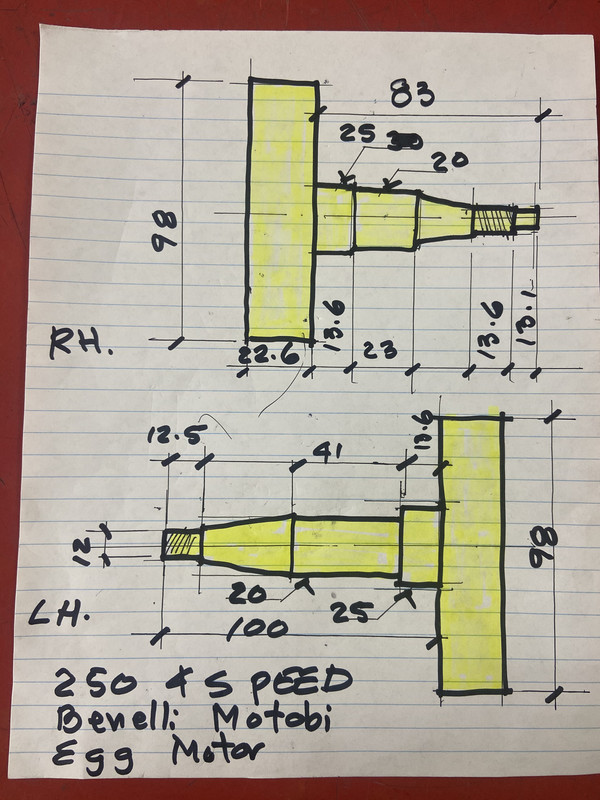 83
25
20
98
13.6
13.6
13.1
RH.
22.6
23
12.5
41
13.6
12
98
20
25
LH.
100
250 4 SPEED
Benelli Motobi
Egg Motor